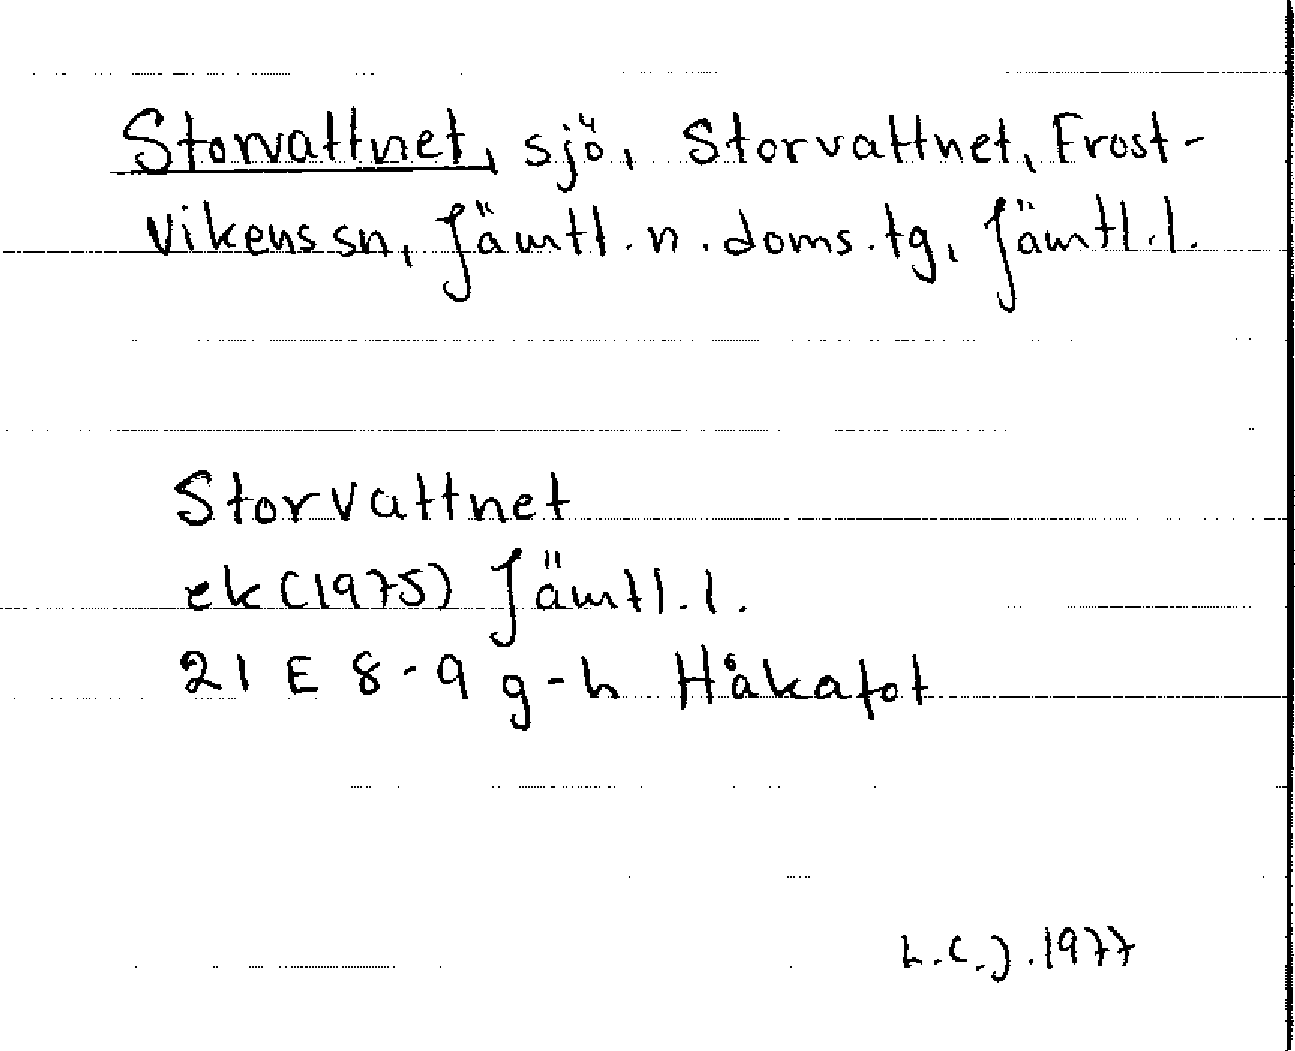 Storvattnet, sjö, Storvattnet, Frost-
vikens sn, Jämtl. n. doms. tg, Jämtl. l.
Storvattnet
ek (1975) Jämtl. l.
21 E 8-9 g-h Håkafot
L.C.J. 1977